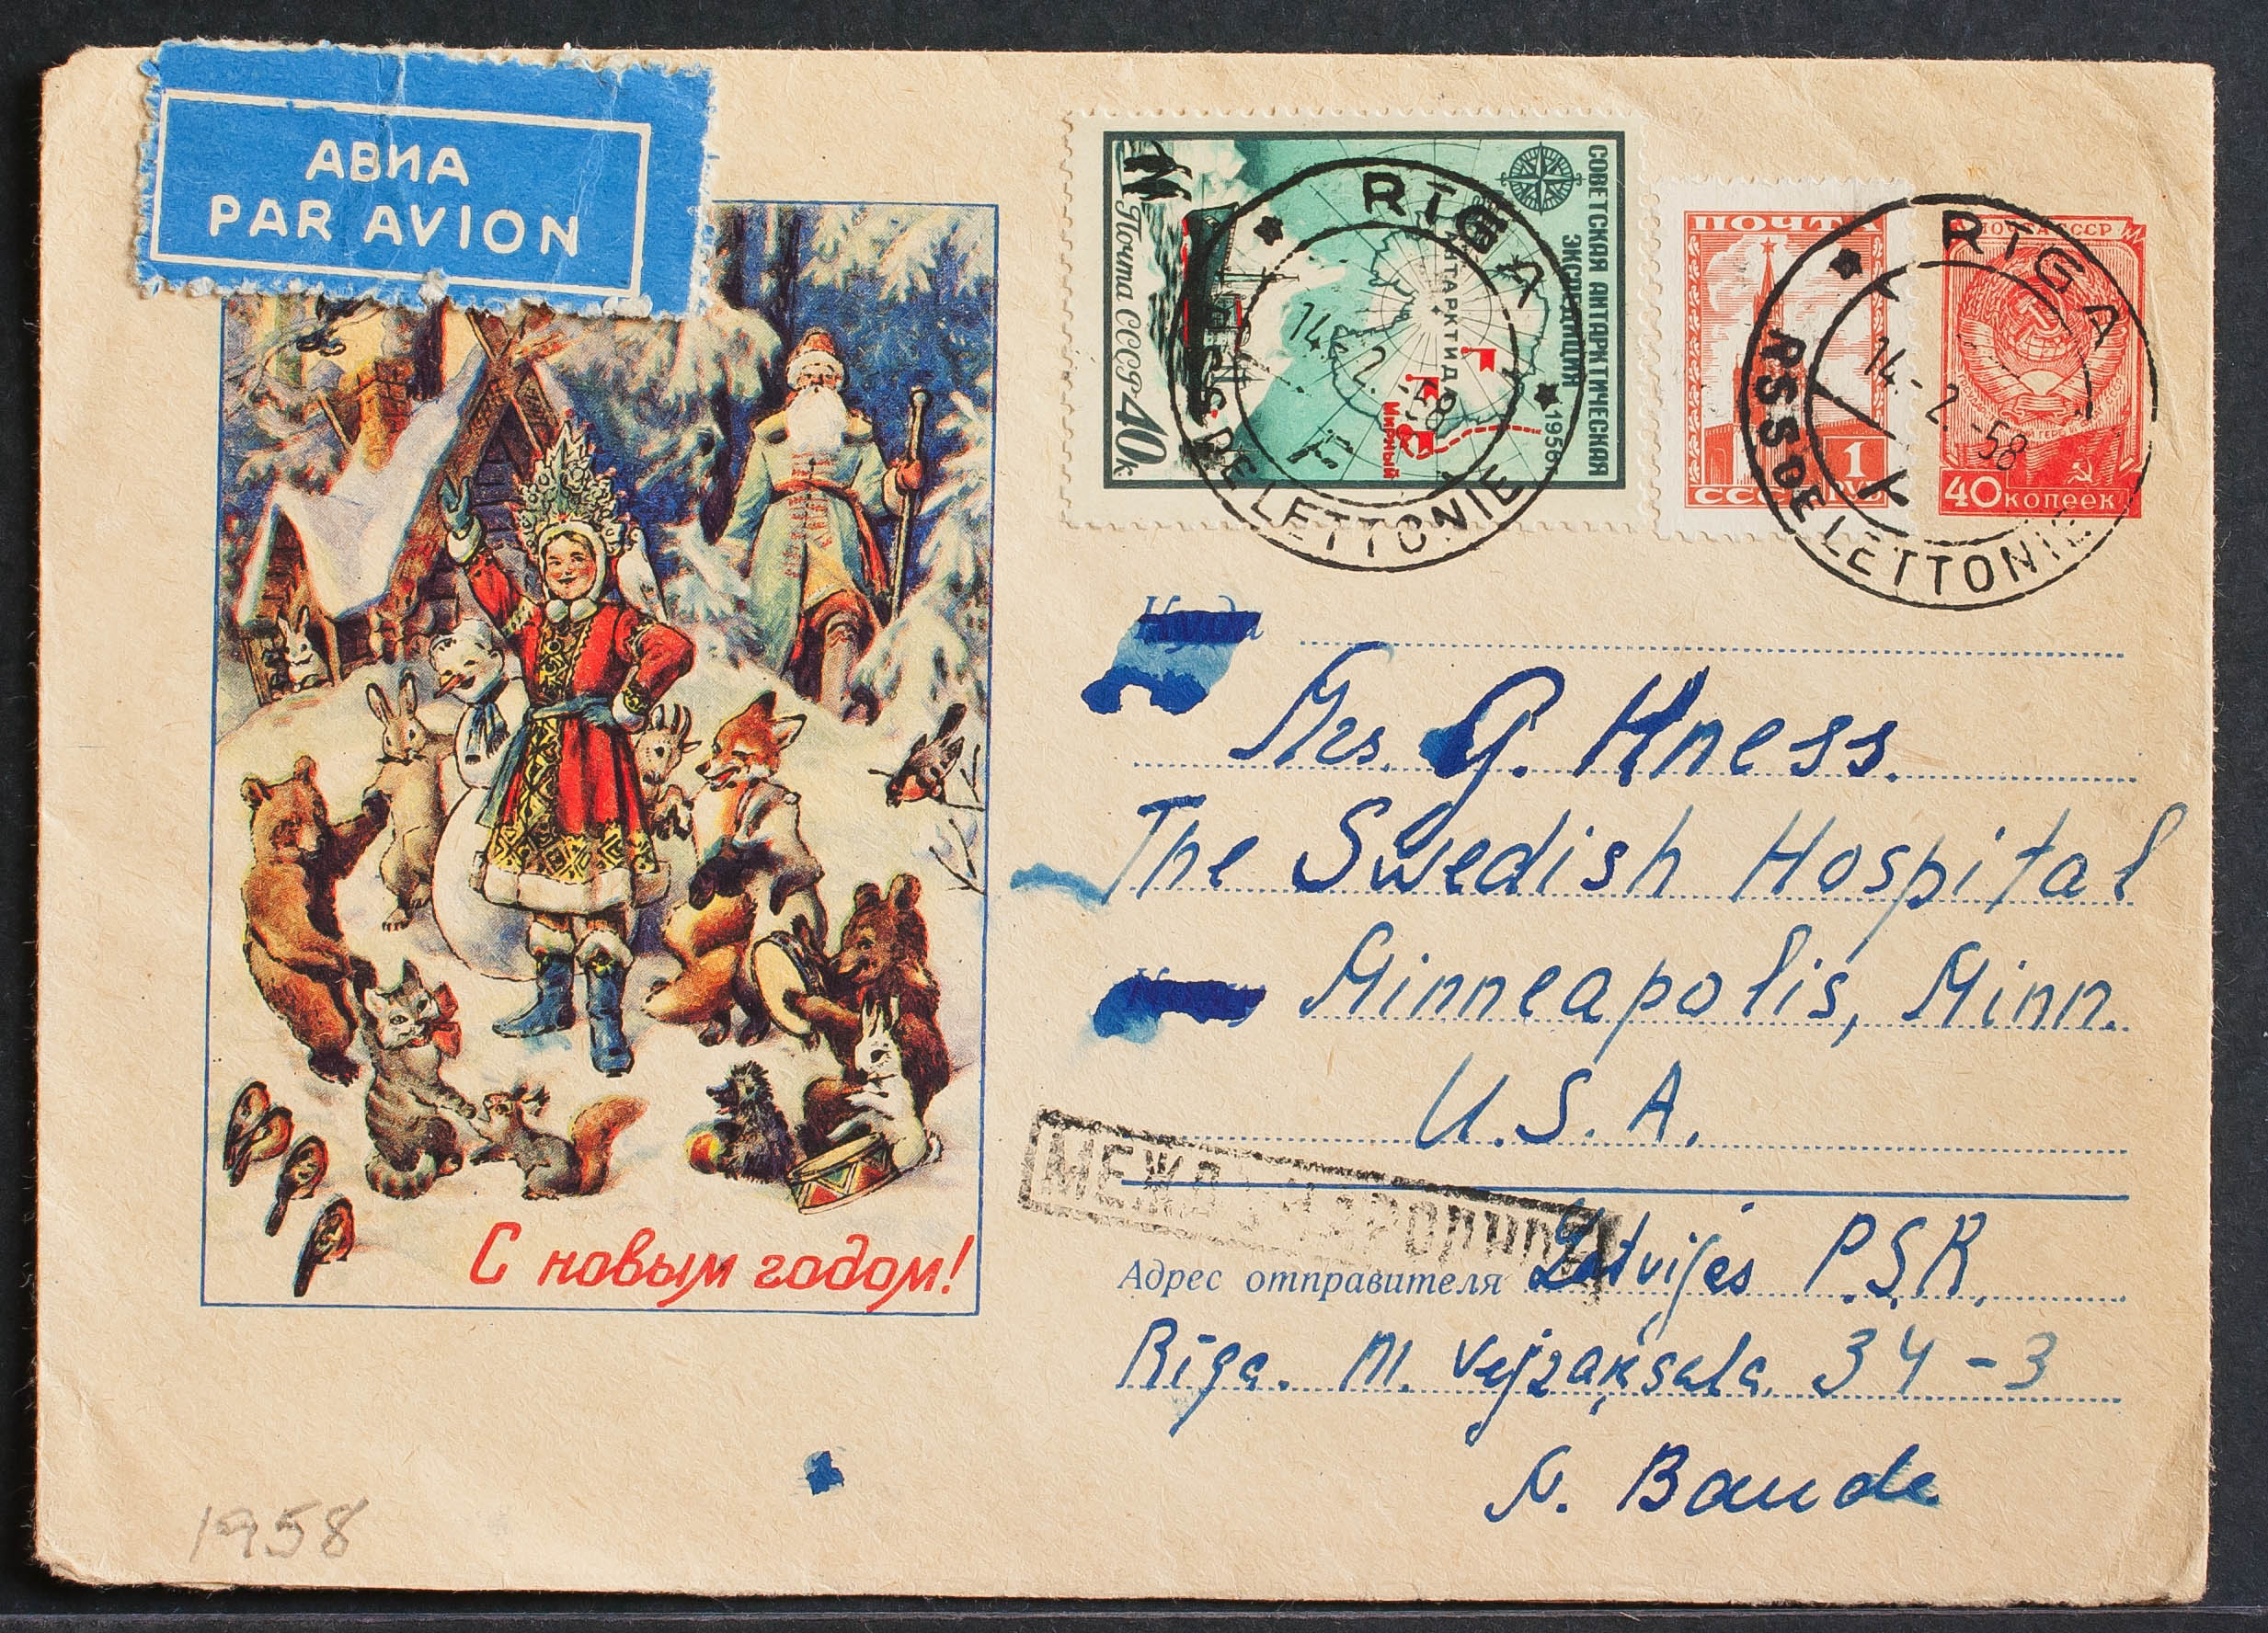 АВИА
PAR AVION
СОВЕТСКАЯ АНТАРКТИЧЕСКАЯ
ЭКСПЕДИЦИЯ
1956
АНТАРКТИДА
Мирный
Почта СССР 40к
RĪGA
14.2.-58
RSS DE LETTONIE
ПОЧТА
1
СССР РУБ
ПОЧТА СССР
40 копеек
RĪGA
14-2-58
RSS DE LETTONIE
Куда
Mrs. G. Kness.
The Swedish Hospital
Minneapolis, Minn.
U.S.A.
МЕЖДУНАРОДНОЕ
Адрес отправителя Latvijas P.S.R.
Rīga. M. Vejzaķsala 34-3
N. Baude
С новым годом!
1958